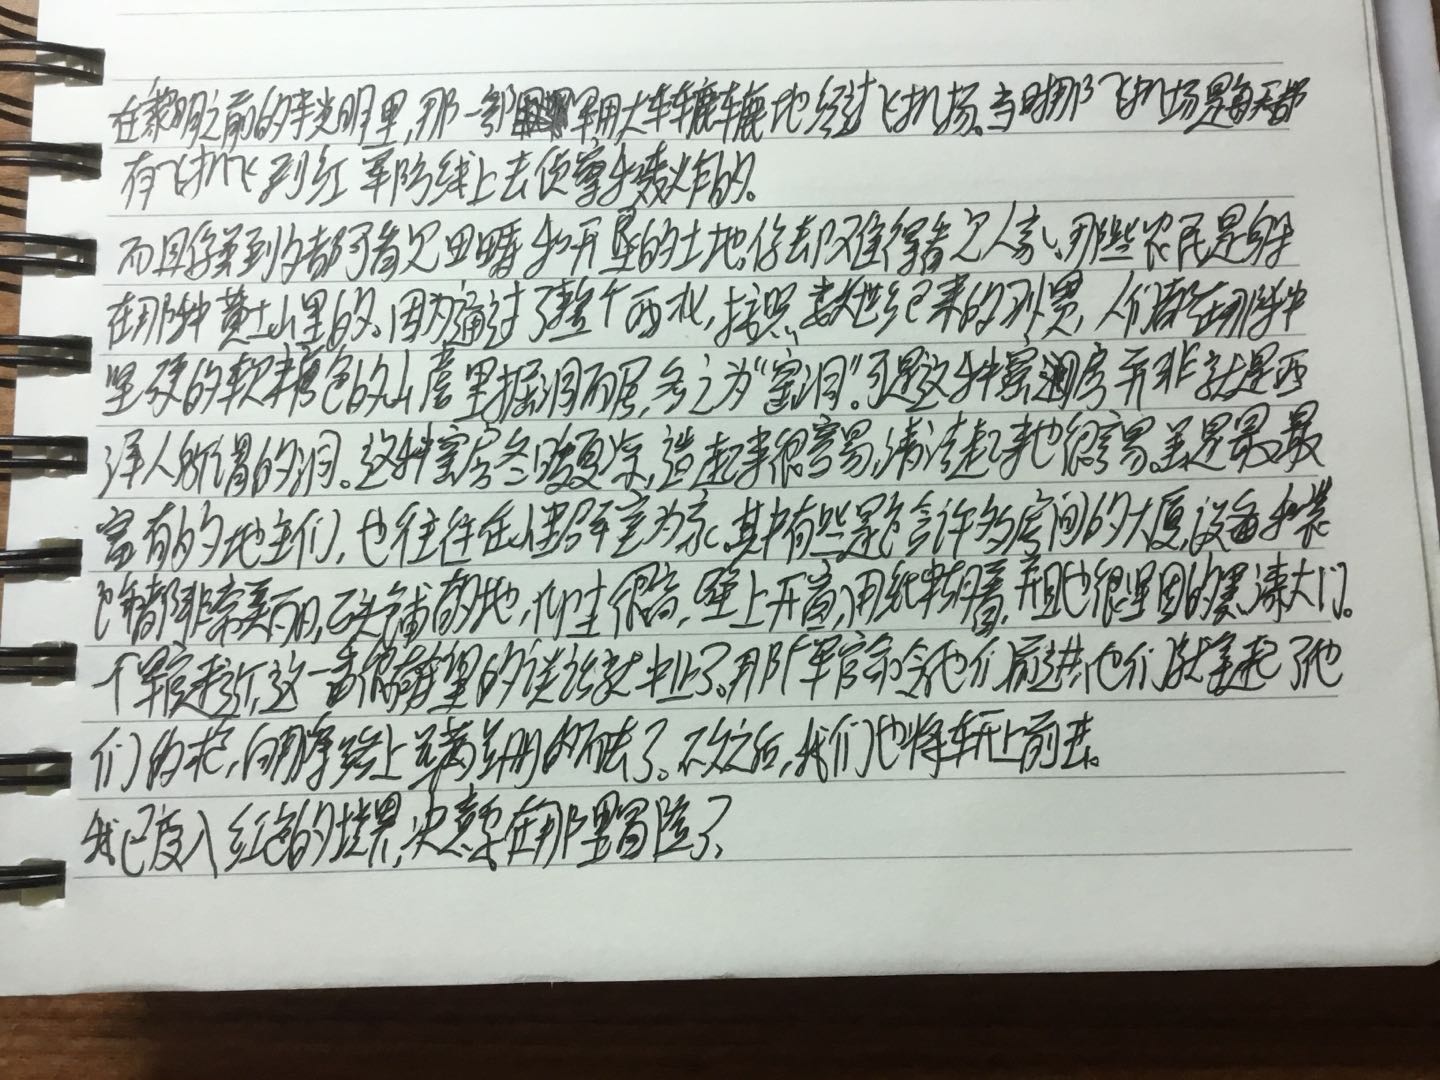 在黎明之前的半光明里,那一部军用大车辘辘地经过飞机场。当时那飞机场是每天都
有飞机飞到红军阵线上去侦察和轰炸的。
而且你到处都可看见田畴和开垦的土地,你却难得看见人家、那些农民是躲
在那种黄土山里的。因为通过了整个西北,按照数世纪来的习惯,人们都在那种
坚硬的软糖色的山崖里掘洞而居,名之为“窑洞”。可是这种窑洞房并非就是西
洋人所谓的洞。这种窑房冬暖夏凉,造起来很容易,清洁起来也很容易。差是最最
富有的地主们,也往往在山里掘窑为家。其中有些是包含许多房间的大厦,设备和装
饰都非常美丽,石头铺的地,很高,壁上开窗,用纸糊着,并且也很坚固的黑漆大门。
个军官来了,这一番很有希望的谈话就中止了。那个军官命令他们前进,他们就拿起了他
们的枪,向那条路上而去了。不久之后,我们也将车开上前去。
我已度入红色的境界,决意要在那里冒险了、